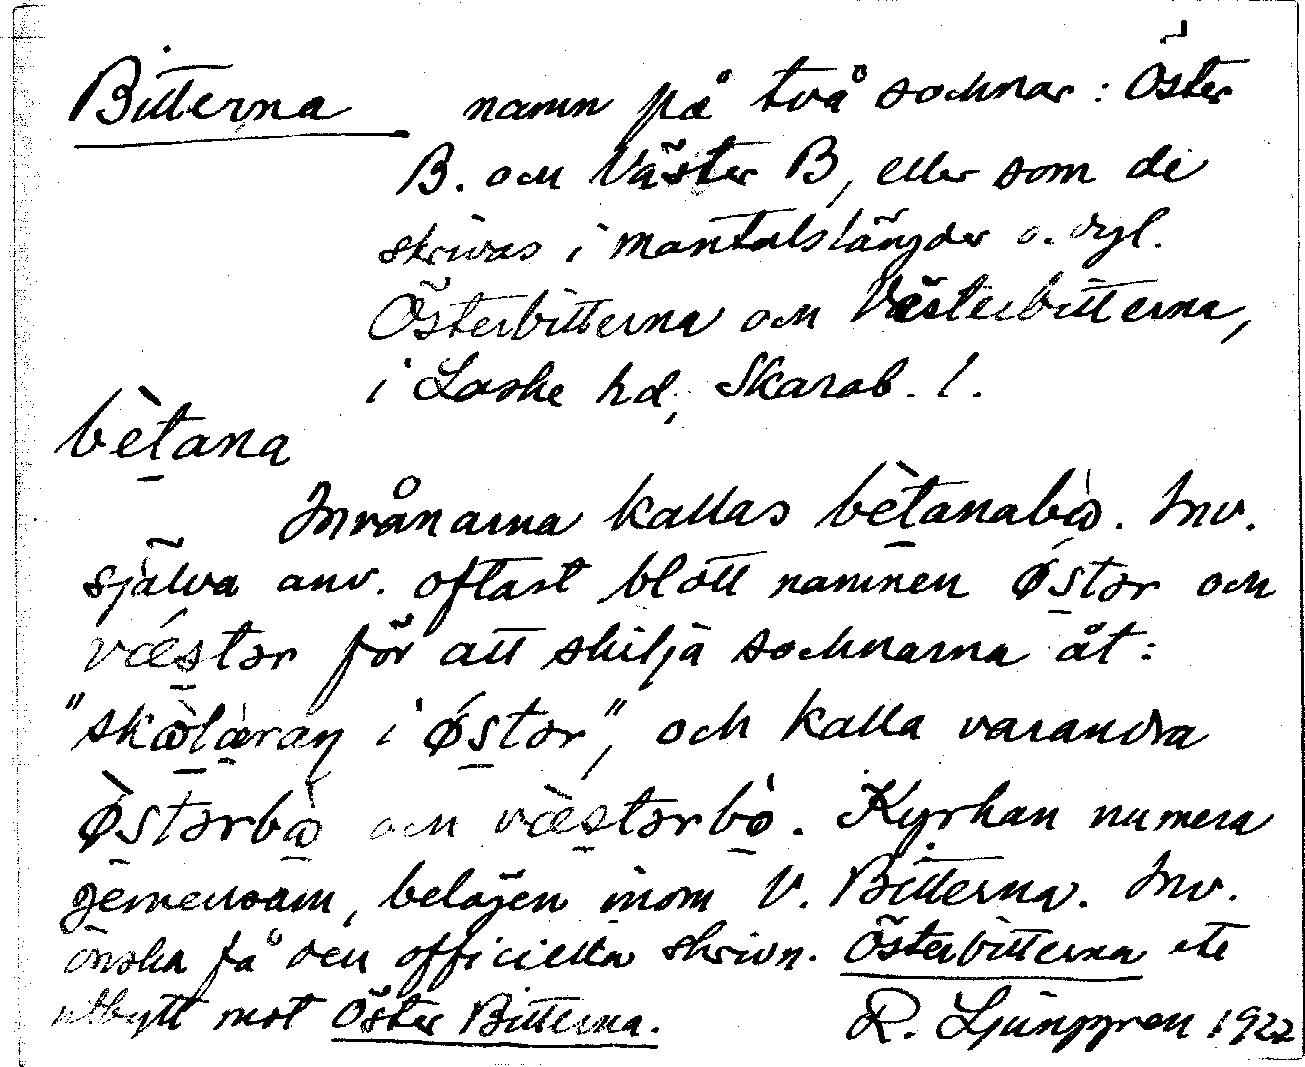 Bitterna namn på två socknar: Öster
B. och Väster B, eller som de
skrivas i mantalslängder o. dyl.
Österbitterna och Västerbitterna,
i Laske hd, Skarab. l.
bètana
Invånarna kallas bètanabò. Inv.
själva anv. oftast blott namnen ǿstər och
vǽstər för att skilja socknarna åt:
"skòlæ̀raŋ i ǿstər", och kalla varandra
ø̀stərbò och væ̀stərbò. Kyrkan numera
gemensam, belägen inom V. Bitterna. Inv.
önska få den officiella skrivn. Österbitterna etc
utbytt mot Öster Bitterna. R. Ljunggren 1922